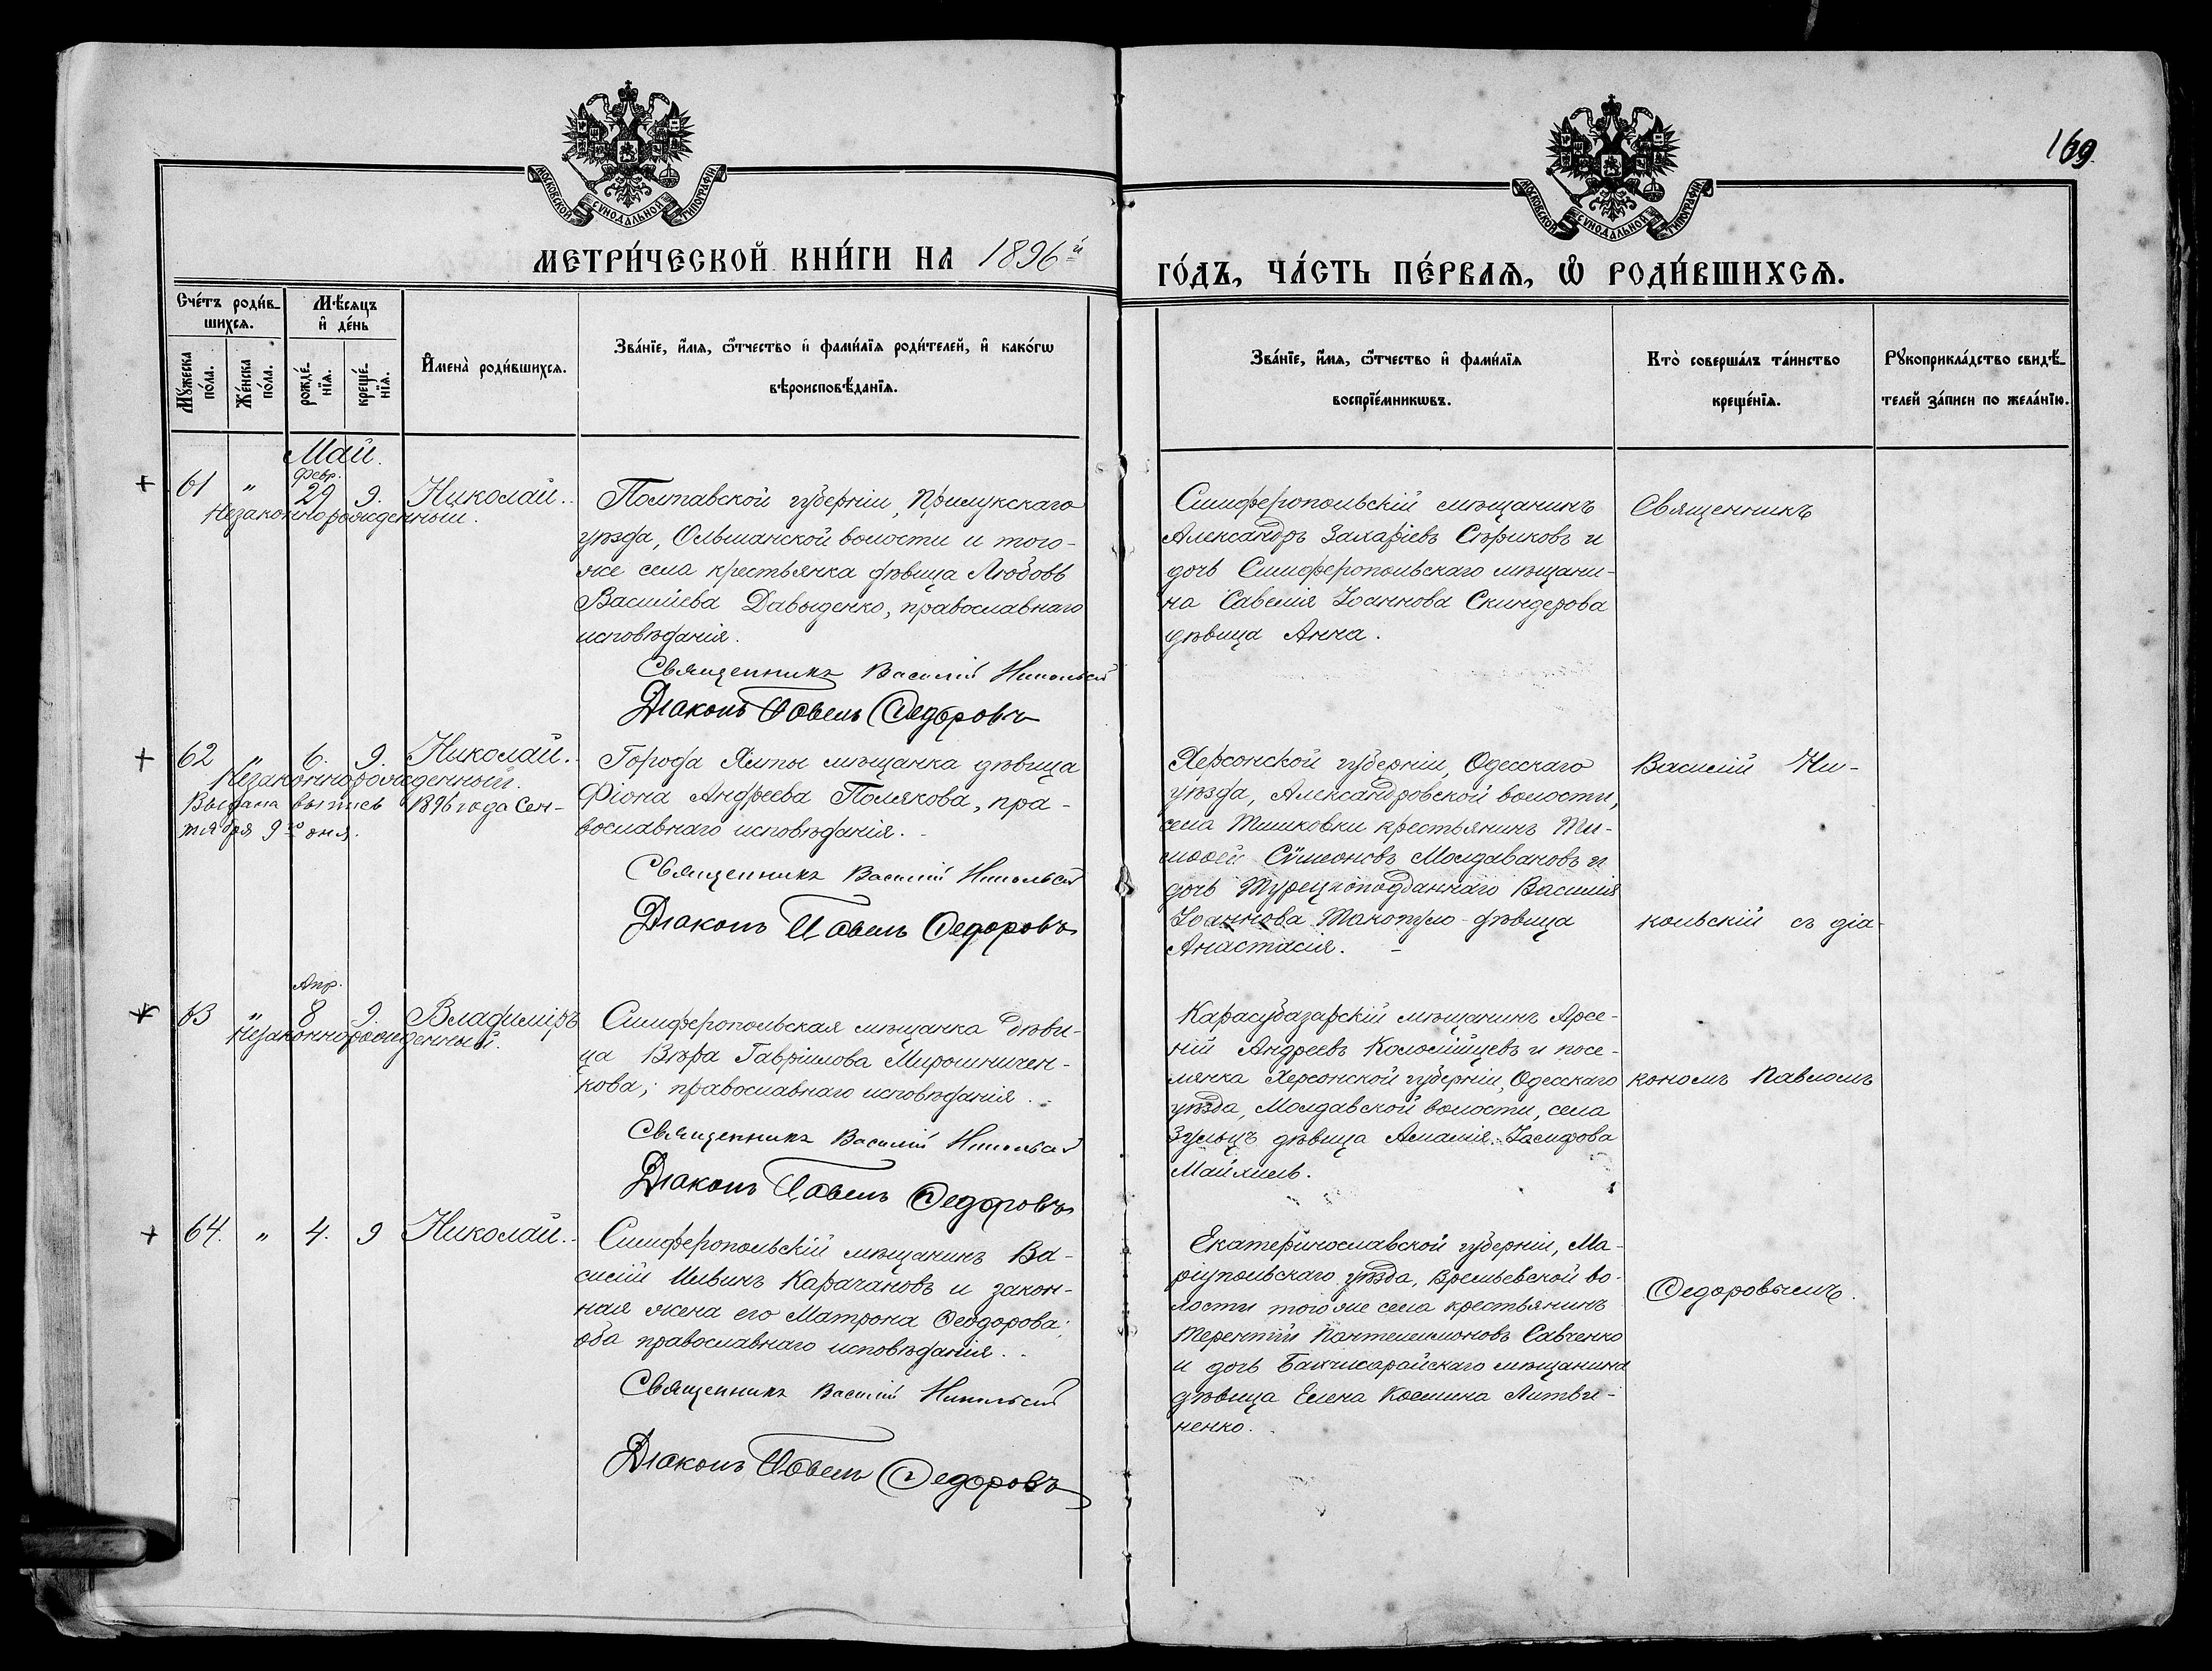 169.
МОСКОВСКОЙ СѴНОДАЛЬНОЙ ТИПОГРАФІИ
МОСКОВСКОЙ СѴНОДАЛЬНОЙ ТИПОГРАФІИ
МЕТРИ́ЧЕСКОЙ КНИ́ГИ НА 1896й
ГО́ДЪ, ЧА́СТЬ ПЕ́РВАѦ, Ѡ҆ РОДИ́ВШИХСѦ.
Сче́тъ роди́в-
шихсѧ.
Мꙋ́жеска по́ла.
Же́нска по́ла.
Мѣ́сѧцъ
и҆ де́нь
рожде́-
нїѧ.
креще́-
нїѧ.
И҆мена̀ роди́вшихсѧ.
Зва́нїе, и҆́мѧ, ѻ҆́тчество и҆ фами́лїѧ роди́телей, и҆ како́гѡ
вѣроисповѣ́данїѧ.
Зва́нїе, и҆́мѧ, ѻ҆́тчество и҆ фами́лїѧ
воспрїе́мникѡвъ.
Кто̀ соверша́лъ та́инство
креще́нїѧ.
Рꙋкоприкла́дство свидѣ́-
телей за́писи по жела́нїю.
Май.
Февр.
61 " 29 9. Николай.
Незаконнорожденный.
Полтавской губерніи, Прилукскаго
уѣзда, Ольшанской волости и того-
же села крестьянка дѣвица Любовь
Васильева Давыденко, православнаго
исповѣданія.
Священникъ Василій Никольскій
Діаконъ Павелъ Федоровъ
Симферопольскій мѣщанинъ
Александръ Захаріевъ Сѣриковъ и
дочь Симферопольскаго мѣщани-
на Савелія Іоаннова Скиндерова
дѣвица Анна.
Священникъ
62 " 6. 9. Николай.
Незаконнорожденный.
Выдана выпись 1896 года Сен-
тября 9го дня.
Города Ялты мѣщанка дѣвица
Фіона Андреева Полякова, пра-
вославнаго исповѣданія.
Священникъ Василій Никольскій
Діаконъ Павелъ Федоровъ
Херсонской губерніи, Одесскаго
уѣзда, Александровской волости,
села Тишковки крестьянинъ Ти-
моѳей Сѵмеоновъ Молдавановъ и
дочь Турецкоподданнаго Василія
Іоаннова Танопуло дѣвица
Анастасія.
Василій Ни-
кольскій съ діа-
Апр.
63 " 8 9. Владиміръ
Незаконнорожденный.
Симферопольская мѣщанка дѣви-
ца Вѣра Гавріилова Мирошничен-
кова; православнаго исповѣданія.
Священникъ Василій Никольскій
Діаконъ Павелъ Федоровъ
Карасубазарскій мѣщанинъ Арсе-
ній Андреевъ Коломійцевъ и посе-
лянка Херсонской губерніи, Одесскаго
уѣзда, Молдавской волости, села
дѣвица Амалія Іосифова
Майхиль.
кономъ Павломъ
64. " 4. 9 Николай.
Симферопольскій мѣщанинъ Ва-
силій Ильинъ Карачановъ и закон-
ная жена его Матрона Ѳеодорова;
оба православнаго исповѣданія.
Священникъ Василій Никольскій
Діаконъ Павелъ Федоровъ
Екатеринославской губерніи, Ма-
ріупольскаго уѣзда, Времьевской во-
лости того же села крестьянинъ
Терентій Пантелеимоновъ Савченко
и дочь Бахчисарайскаго мѣщанина
дѣвица Елена Космина Литви-
ненко.
Федоровымъ.